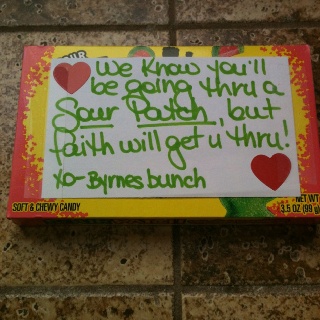 We know you'll
be going thru a
Sour Patch, but
faith will get u thru!
xo- Byrnes bunch
SOFT & CHEWY CANDY
NET WT
3.5 OZ (99 g)